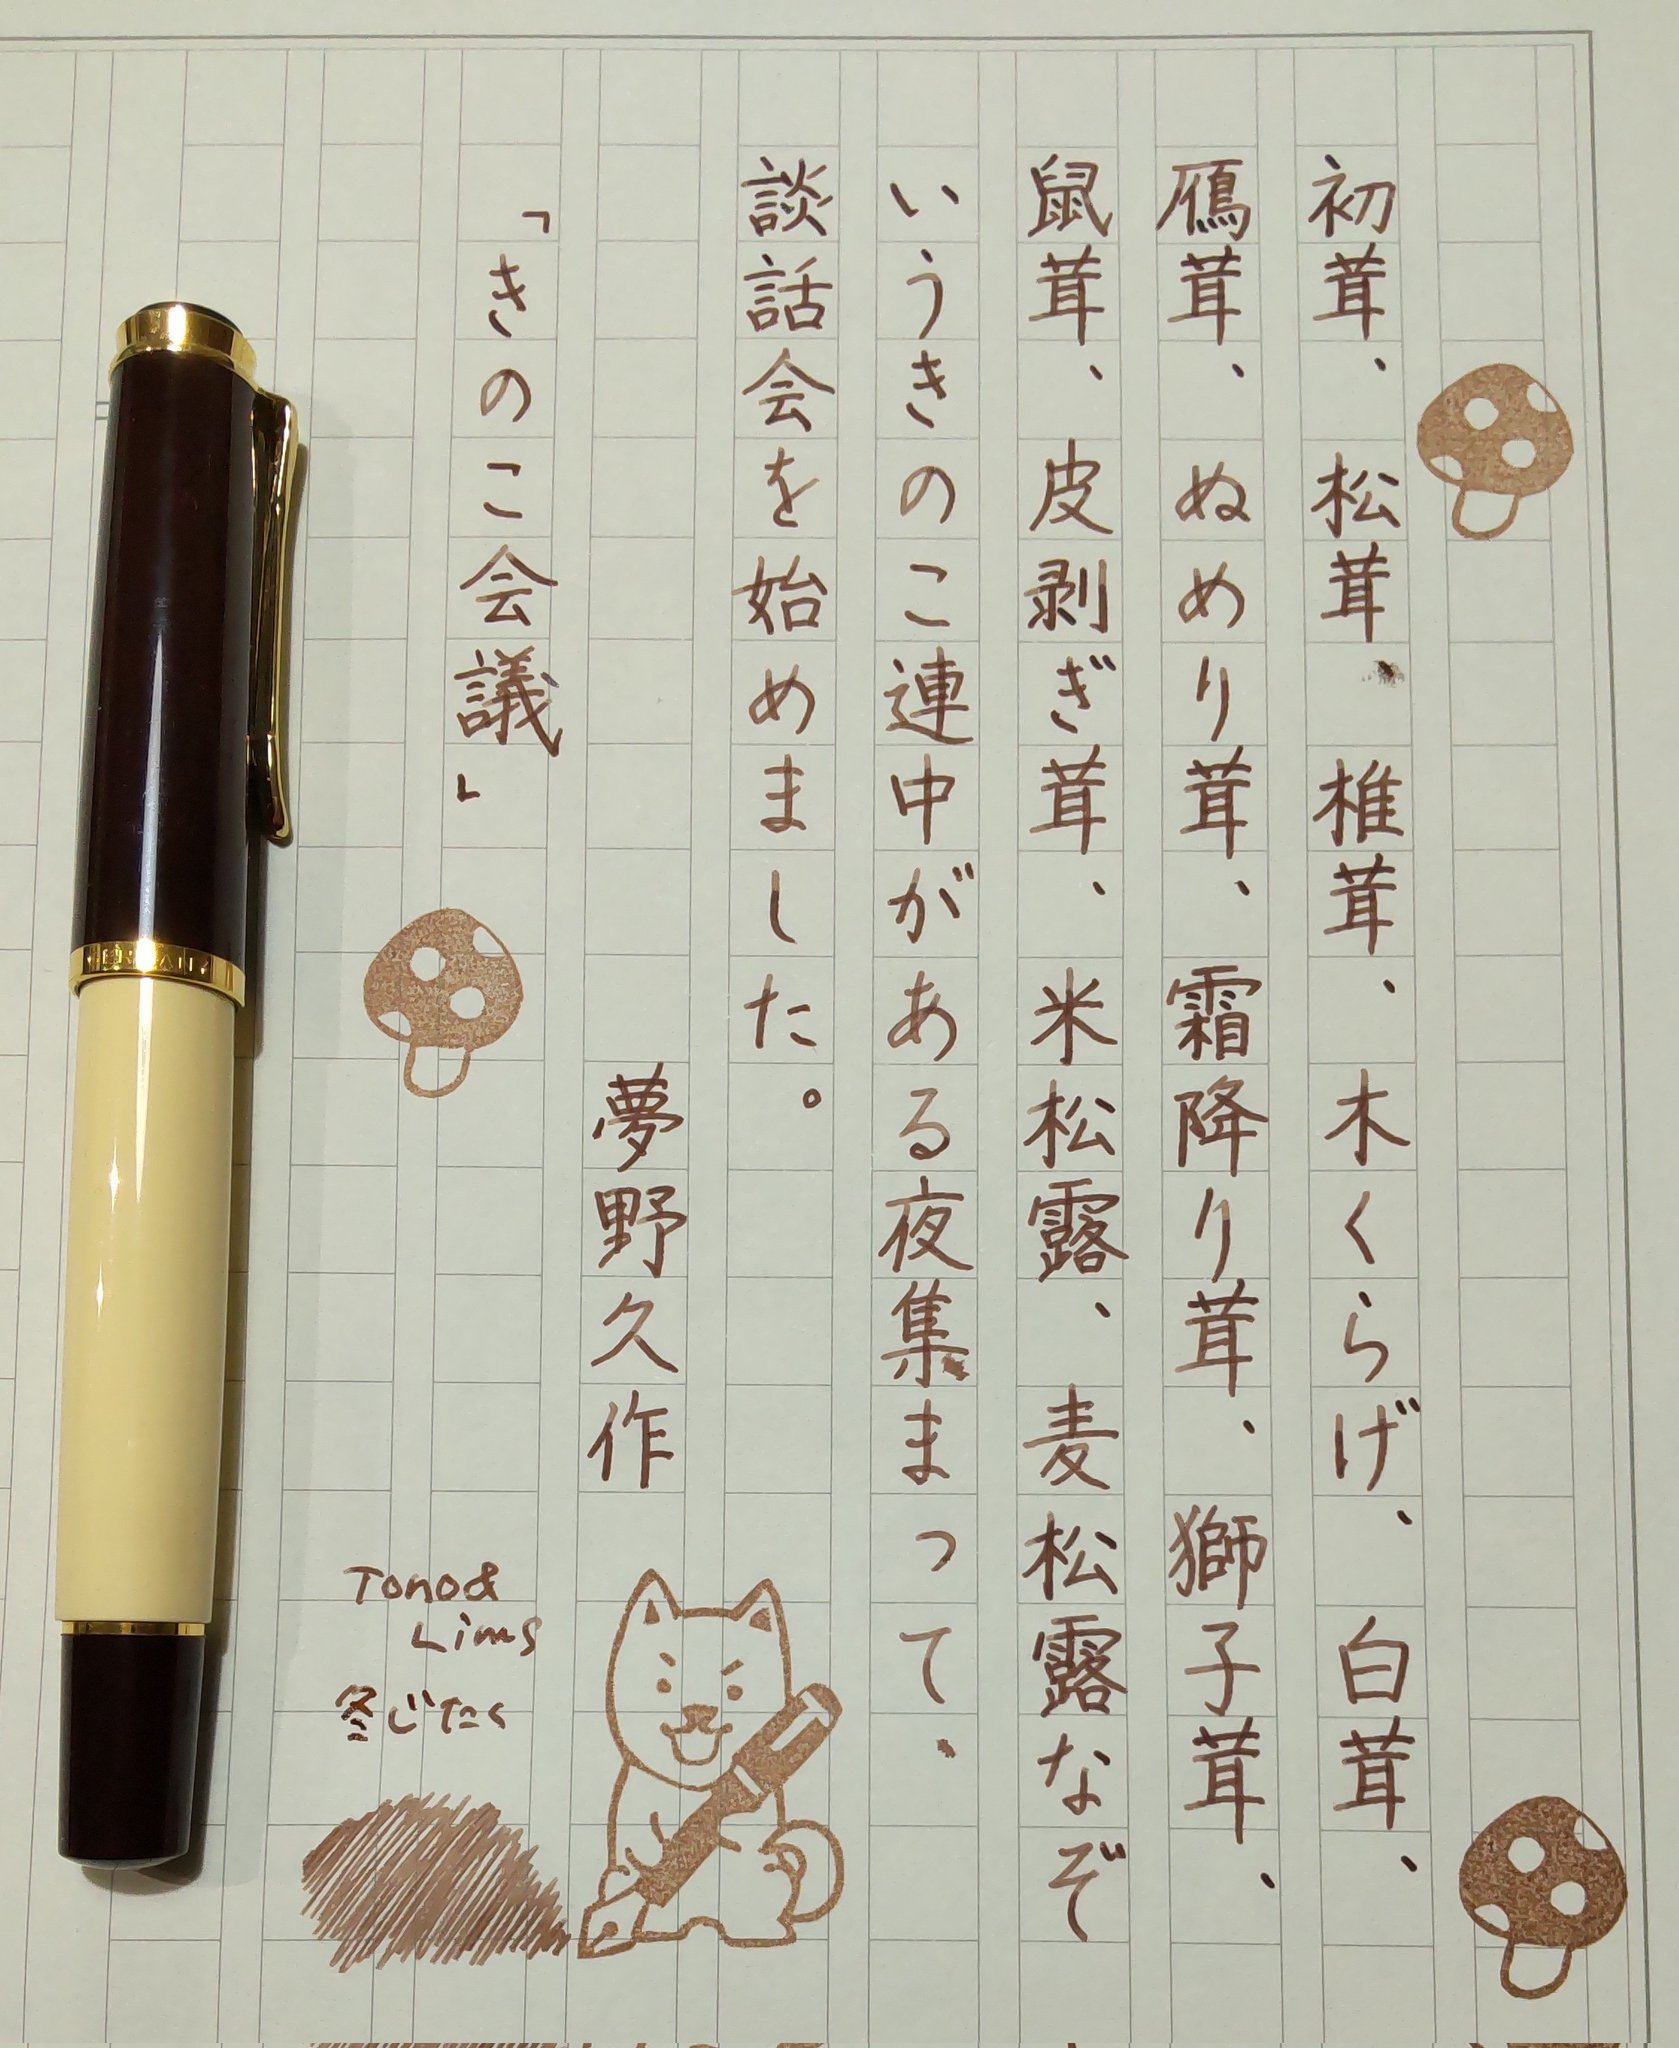 初茸、松茸、椎茸、木くらげ、白茸、
鴈茸、ぬめり茸、霜降り茸、獅子茸、
鼠茸、皮剥ぎ茸、米松露、麦松露なぞ
いうきのこ連中がある夜集まって、
談話会を始めました。
夢野久作
「きのこ会議」
Tono&
Lims
冬じたく